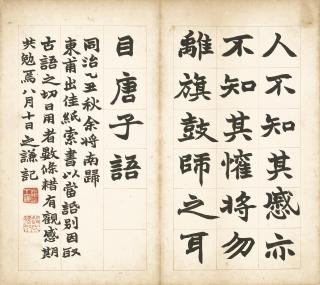 人不知其惑亦
不知其慛將勿
離旗鼓師之耳
目唐子語
同治乙丑秋余將南歸
東甫出佳紙索書以當詒別因取
古語之切日用者數條糈有觀感期
共勉焉八月十日之謙記